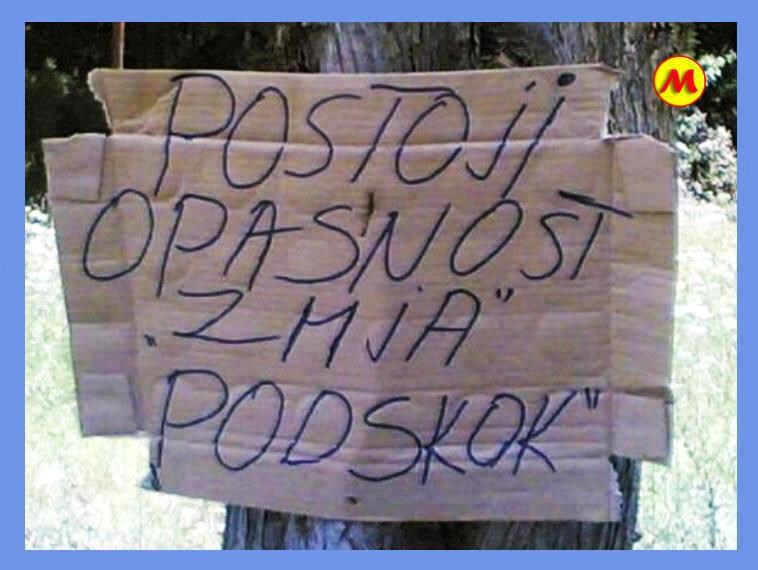 POSTOJI
OPASNOST
„ZMJA"
„PODSKOK"
M